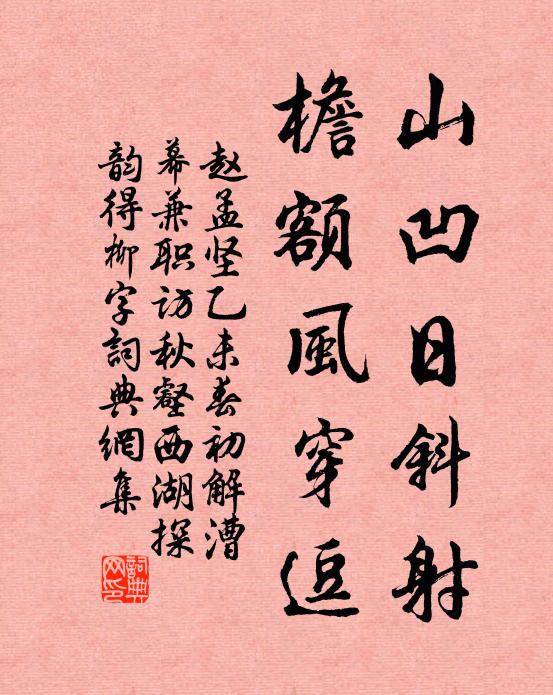 山凹日斜射
檐額風穿逗
赵孟坚乙未春初解漕
幕兼职访秋壑西湖探
韵得柳字詞典網集
詞典
网印